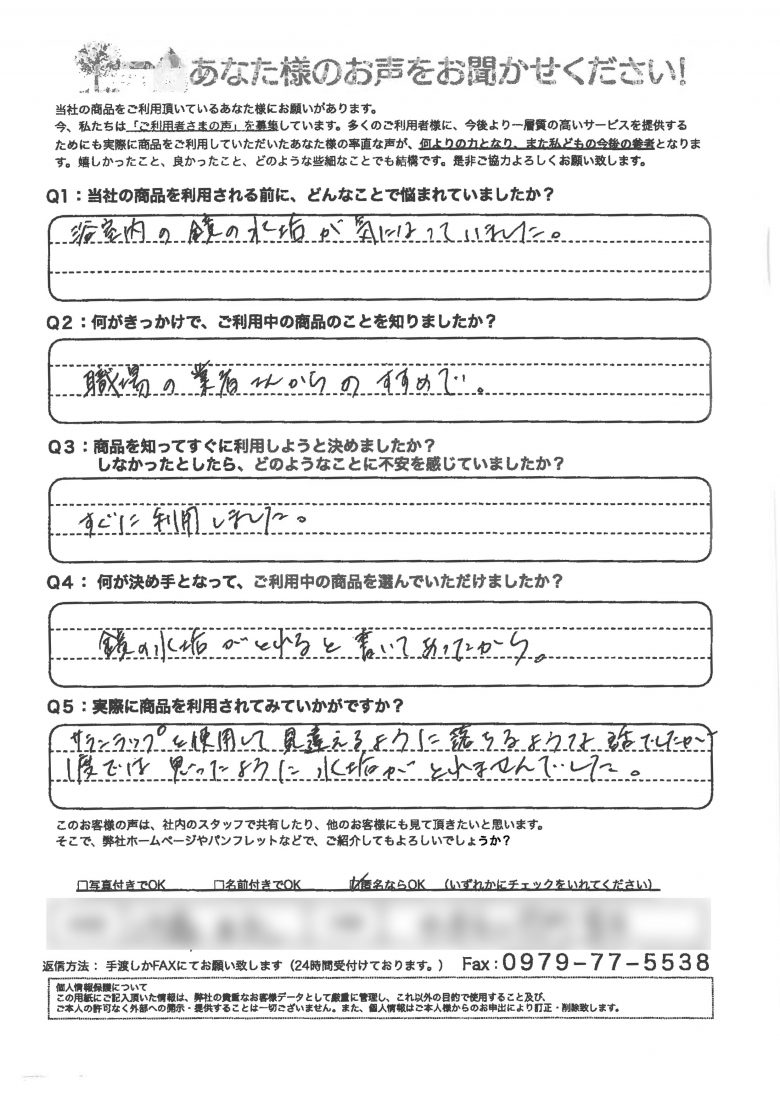 あなた様のお声をお聞かせください!
当社の商品をご利用頂いているあなた様にお願いがあります。
今、私たちは「ご利用者さまの声」を募集しています。多くのご利用者様に、今後より一層質の高いサービスを提供する
ためにも実際に商品をご利用していただいたあなた様の率直な声が、何よりの力となり、また私どもの今後の参考となりま
す。嬉しかったこと、良かったこと、どのような些細なことでも結構です。是非ご協力よろしくお願い致します。
Q1：当社の商品を利用される前に、どんなことで悩まれていましたか？
浴室内の鏡の水垢が気になっていました。
Q2：何がきっかけで、ご利用中の商品のことを知りましたか？
職場の業者さんからのすすめで。
Q3：商品を知ってすぐに利用しようと決めましたか？
しなかったとしたら、どのようなことに不安を感じていましたか？
すぐに利用しました。
Q4： 何が決め手となって、ご利用中の商品を選んでいただけましたか？
鏡の水垢がとれると書いてあったから。
Q5：実際に商品を利用されてみていかがですか？
サランラップを使用して見違えるように落ちるような話でしたが
1度では思ったように水垢がとれませんでした。
このお客様の声は、社内のスタッフで共有したり、他のお客様にも見て頂きたいと思います。
そこで、弊社ホームページやパンフレットなどで、ご紹介してもよろしいでしょうか？
□写真付きでOK □名前付きでOK ☑匿名ならOK （いずれかにチェックをいれてください）
返信方法： 手渡しかFAXにてお願い致します（24時間受付けております。） Fax：0979−77−5538
個人情報保護について
この用紙にご記入頂いた情報は、弊社の貴重なお客様データとして厳重に管理し、これ以外の目的で使用すること及び、
ご本人の許可なく外部への開示・提供することは一切ございません。また、個人情報はご本人様からのお申出により訂正・削除致します。